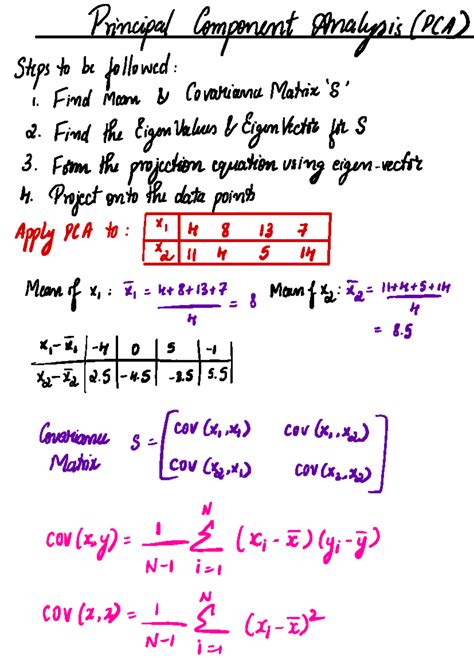 Principal Component Analysis (PCA)
Steps to be followed :
1. Find Mean & Covariance Matrix 'S'
2. Find the Eigen Values & Eigen Vector for S
3. Form the projection equation using eigen-vector
4. Project onto the data points
Apply PCA to : x₁ 4 8 13 7
x₂ 11 4 5 14
Mean of x₁ : x̄₁ = 4+8+13+7 / 4 = 8 Mean of x₂ : x̄₂ = 11+4+5+14 / 4
= 8.5
x₁-x̄₁ -4 0 5 -1
x₂-x̄₂ 2.5 -4.5 -3.5 5.5
Covariance Matrix S = [ cov (x₁,x₁) cov (x₁,x₂)
cov (x₂,x₁) cov (x₂,x₂) ]
cov (x,y) = 1/N-1 Σ i=1 N (xᵢ - x̄) (yᵢ - ȳ)
cov (x,x) = 1/N-1 Σ i=1 N (xᵢ - x̄)²